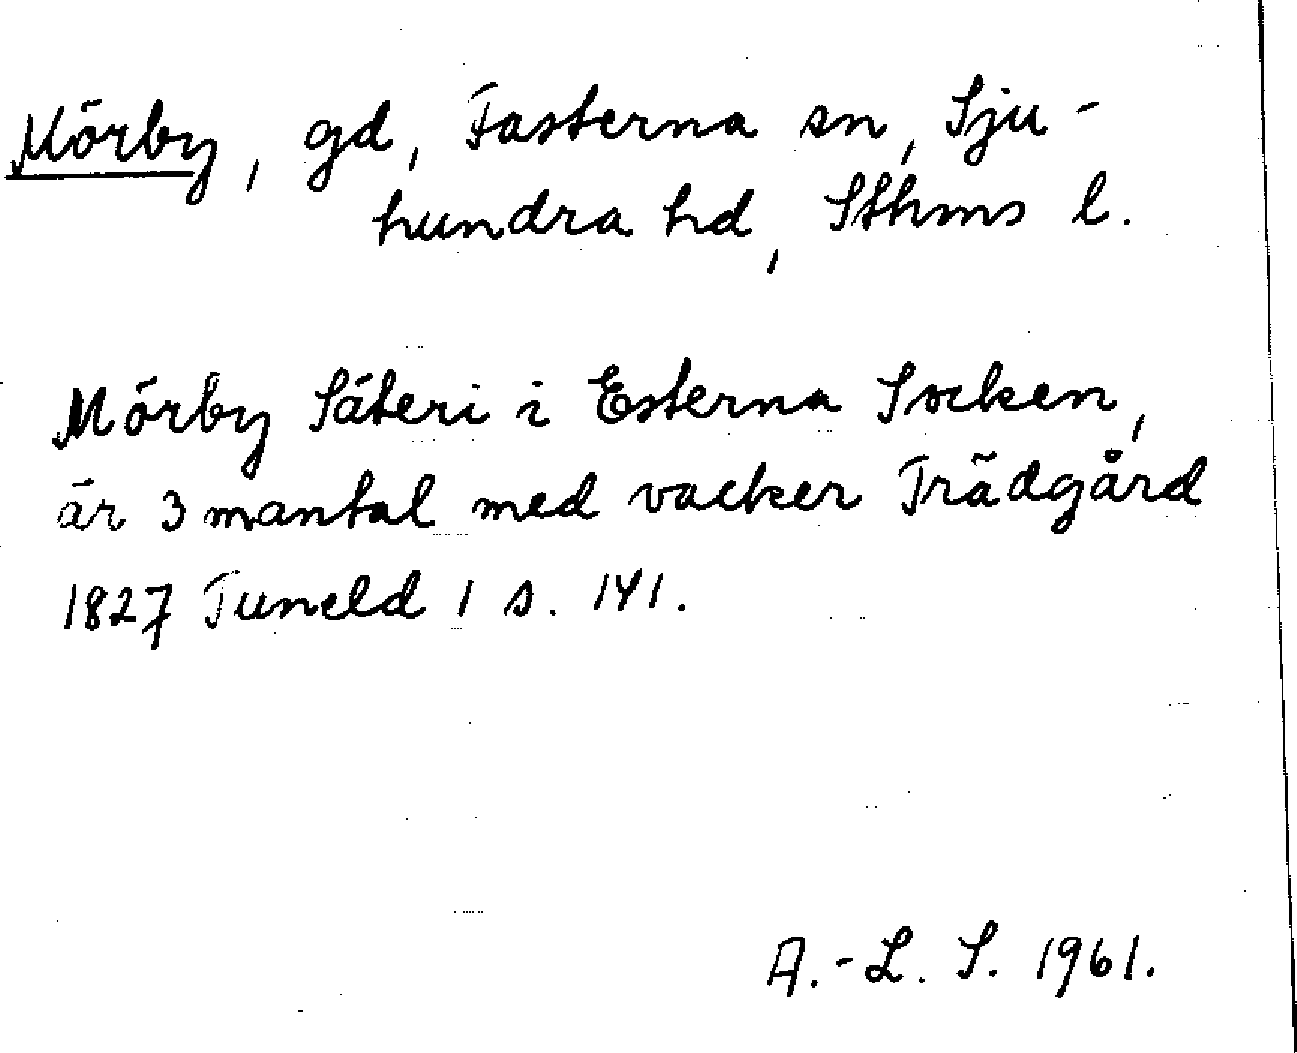 Mörby, gd, Fasterna sn, Sju-
hundra hd, Sthms l.
Mörby Säteri i Esterna Socken,
är 3 mantal med vacker Trädgård
1827 Tuneld 1 s. 141.
A.-L. S. 1961.